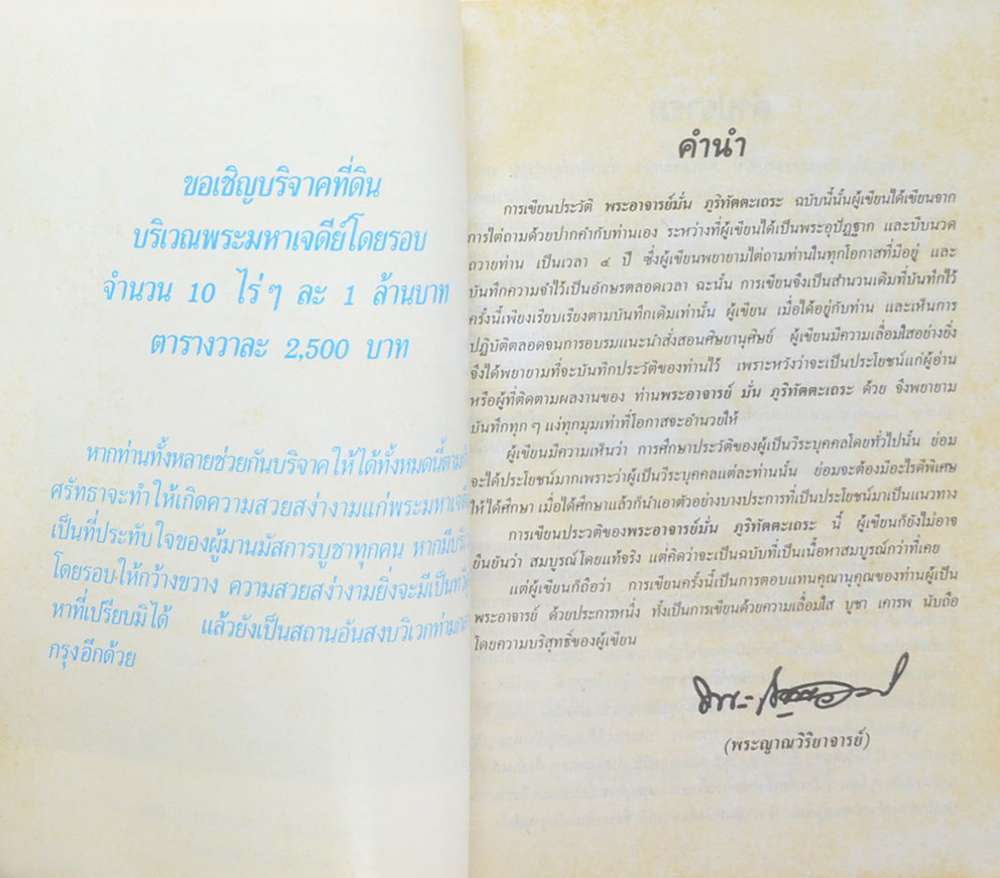 ขอเชิญบริจาคที่ดิน
บริเวณพระมหาเจดีย์โดยรอบ
จำนวน 10 ไร่ ๆ ละ 1 ล้านบาท
ตารางวาละ 2,500 บาท
หากท่านทั้งหลายช่วยกันบริจาคให้ได้ทั้งหมดนี้ตาม
ศรัทธาจะทำให้เกิดความสวยสง่างามแก่พระมหาเจดีย์
เป็นที่ประทับใจของผู้มานมัสการบูชาทุกคน หากมีบริ
โดยรอบให้กว้างขวาง ความสวยสง่างามยิ่งจะมีเป็นทวี
หาที่เปรียบมิได้ แล้วยังเป็นสถานอันสงบวิเวกท่าม
กรุงอีกด้วย
คำนำ
การเขียนประวัติ พระอาจารย์มั่น ภูริทัตตะเถระ ฉบับนี้นั้นผู้เขียนได้เขียนจาก
การไต่ถามด้วยปากคำกับท่านเอง ระหว่างที่ผู้เขียนได้เป็นพระอุปัฏฐาก และบีบนวด
ถวายท่าน เป็นเวลา ๔ ปี ซึ่งผู้เขียนพยายามไต่ถามท่านในทุกโอกาสที่มีอยู่ และ
บันทึกความจำไว้เป็นอักษรตลอดเวลา ฉะนั้น การเขียนจึงเป็นสำนวนเดิมที่บันทึกไว้
ครั้งนี้เพียงเรียบเรียงตามบันทึกเดิมเท่านั้น ผู้เขียน เมื่อได้อยู่กับท่าน และเห็นการ
ปฏิบัติตลอดจนการอบรมแนะนำสั่งสอนศิษยานุศิษย์ ผู้เขียนมีความเลื่อมใสอย่างยิ่ง
จึงได้พยายามที่จะบันทึกประวัติของท่านไว้ เพราะหวังว่าจะเป็นประโยชน์แก่ผู้อ่าน
หรือผู้ที่ติดตามผลงานของ ท่านพระอาจารย์ มั่น ภูริทัตตะเถระ ด้วย จึงพยายาม
บันทึกทุก ๆ แง่ทุกมุมเท่าที่โอกาสจะอำนวยให้
ผู้เขียนมีความเห็นว่า การศึกษาประวัติของผู้เป็นวีระบุคคลโดยทั่วไปนั้น ย่อม
จะได้ประโยชน์มากเพราะว่าผู้เป็นวีระบุคคลแต่ละท่านนั้น ย่อมจะต้องมีอะไรดีพิเศษ
ให้ได้ศึกษา เมื่อได้ศึกษาแล้วก็นำเอาตัวอย่างบางประการที่เป็นประโยชน์มาเป็นแนวทาง
การเขียนประวัติของพระอาจารย์มั่น ภูริทัตตะเถระ นี้ ผู้เขียนก็ยังไม่อาจ
ยืนยันว่า สมบูรณ์โดยแท้จริง แต่คิดว่าจะเป็นฉบับที่เป็นเนื้อหาสมบูรณ์กว่าที่เคย
แต่ผู้เขียนก็ถือว่า การเขียนครั้งนี้เป็นการตอบแทนคุณานุคุณของท่านผู้เป็น
พระอาจารย์ ด้วยประการหนึ่ง ทั้งเป็นการเขียนด้วยความเลื่อมใส บูชา เคารพ นับถือ
โดยความบริสุทธิ์ของผู้เขียน
(พระญาณวิริยาจารย์)